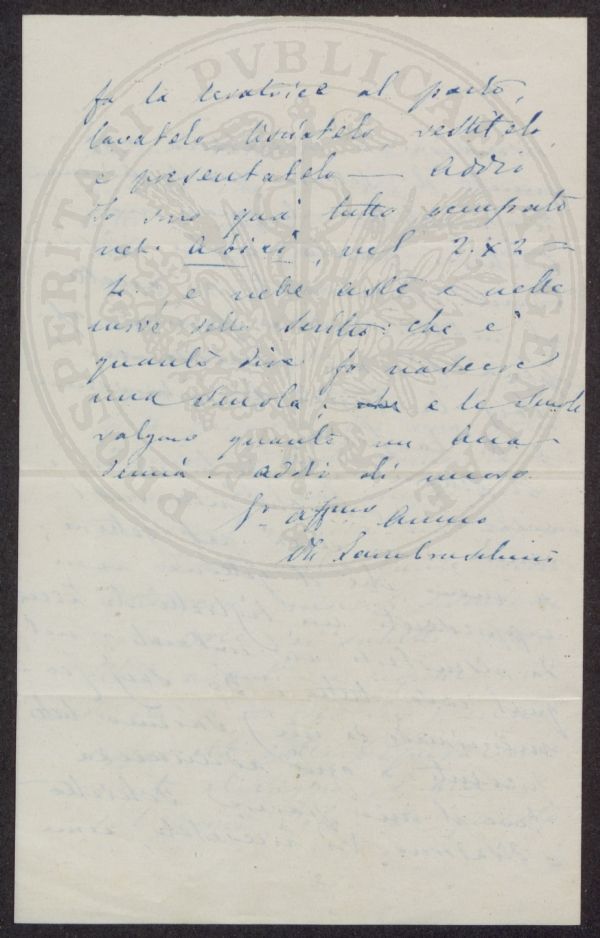 PROSPERITATI PVBLICAE AVGENDAE
fa la levatrice al parto,
lavatelo, lisciatelo, vestitelo,
e presentatelo — Addio
Io sono quà tutto occupato
nelle a b i x i, nel 2 x 2 =
4. e nelle aste e nelle
curve dello scritto: che è
quanto dire fo nascere
una Scuola; e le Scuole
valgono quanto un Acca-
demia. addio di nuovo
Vr affmo Amico
R Lambruschini